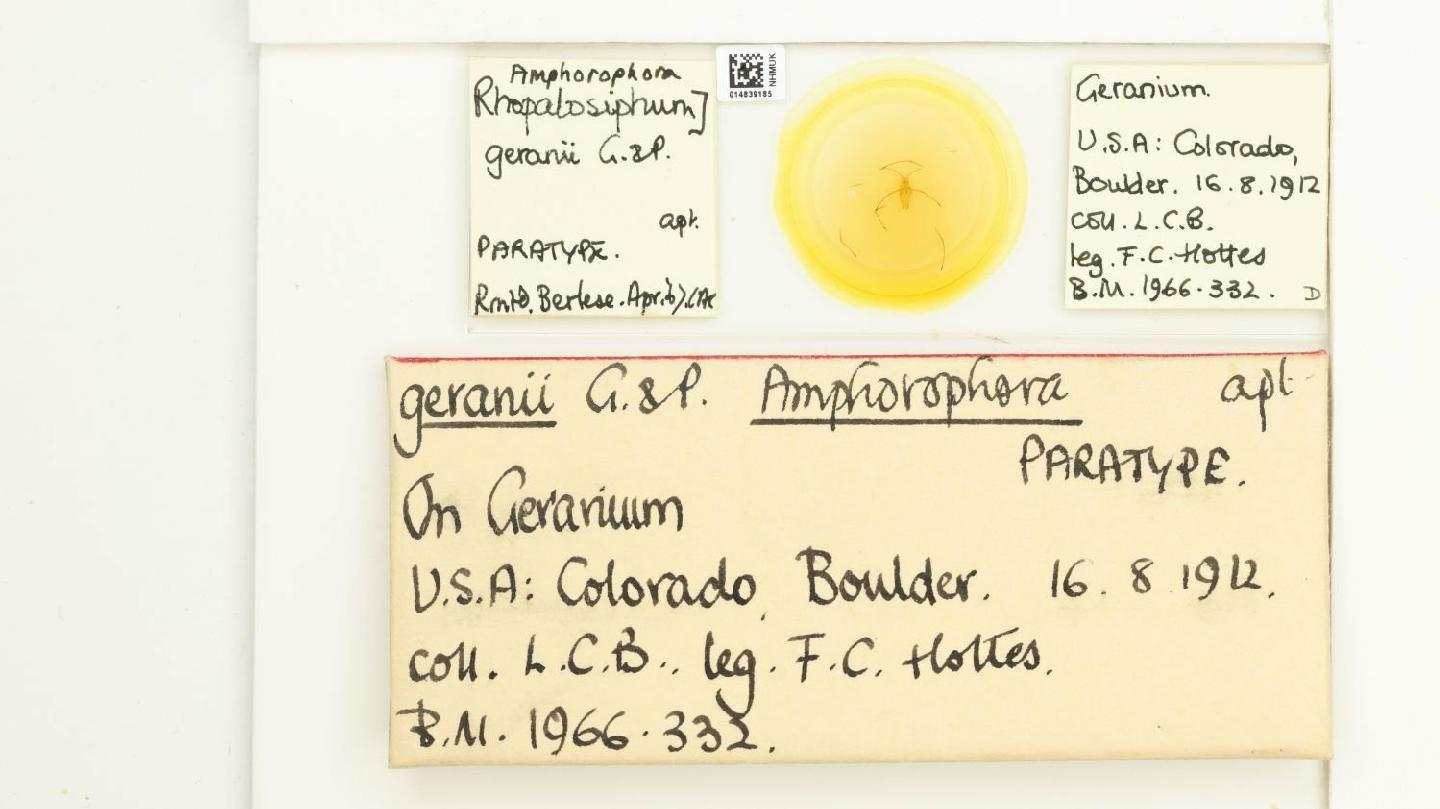 Amphorophora
Rhopalosiphum]
geranii G.&P.
apt.
PARATYPE.
Berlese. Apr.
NHMUK
014839185
Geranium.
U.S.A: Colorado,
Boulder. 16.8.1912
coll. L.C.B.
leg. F.C. Hottes
B.M. 1966.332. D
geranii G.&P. Amphorophora apt.
PARATYPE.
On Geranium
U.S.A: Colorado, Boulder. 16. 8 1912.
coll. L.C.B., leg. F.C. Hottes.
B.M. 1966.332.